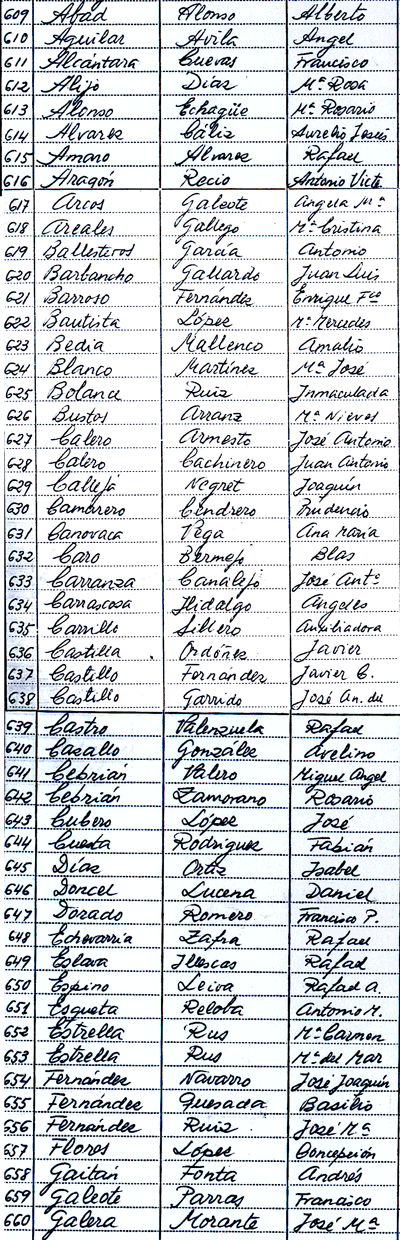 609 Abad Alonso Alberto
610 Aguilar Avila Angel
611 Alcántara Cuevas Francisco
612 Alijo Días Mª Rosa
613 Alonso Echagüe Mª Rosario
614 Alvarez Cáliz Aurelio Jesús
615 Amaro Alvarez Rafael
616 Aragón Recio Antonio Victr.
617 Arcos Galeote Angela Mª
618 Areales Gallego Mª Cristina
619 Ballesteros García Antonio
620 Barbancho Gallardo Juan Luis
621 Barroso Fernández Enrique Fco
622 Bautista López Mª Mercedes
623 Bedia Mallenco Amalio
624 Blanco Martínez Mª José
625 Bolance Ruiz Inmaculada
626 Bustos Arranz Mª Nieves
627 Calero Armesto José Antonio
628 Calero Cachinero Juan Antonio
629 Calleja Negret Joaquín
630 Camarero Cendrero Prudencio
631 Canovaca Vega Ana María
632 Caro Bermejo Blas
633 Carranza Canalejo José Antº
634 Carrascosa Hidalgo Angeles
635 Carrillo Sillero Auxiliadora
636 Castilla Ordóñez Javier
637 Castillo Fernández Javier C.
638 Castillo Garrido José An. de
639 Castro Valenzuela Rafael
640 Casallo González Avelino
641 Cebrián Valero Miguel Angel
642 Cebrián Zamorano Rosario
643 Cubero López José
644 Cuesta Rodríguez Fabián
645 Días Ortiz Isabel
646 Doncel Lucena Daniel
647 Dorado Romero Francisco P.
648 Echevarria Zafra Rafael
649 Eslava Illescas Rafael
650 Espino Leiva Rafael A.
651 Esqueta Reloba Antonio M.
652 Estrella Rus Mª Carmen
653 Estrella Rus Mª del Mar
654 Fernández Navarro José Joaquín
655 Fernández Quesada Basilio
656 Fernández Ruiz José Mª
657 Flores López Concepción
658 Gaitán Fonta Andrés
659 Galeote Parras Francisco
660 Galera Morante José Mª